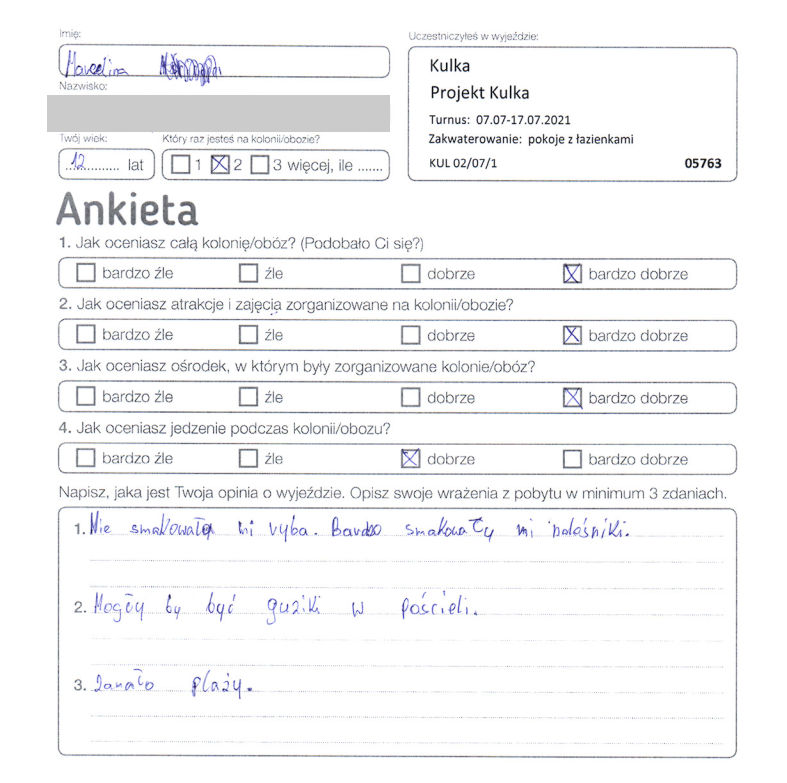 Imię:
Marcelina
Nazwisko:
Twój wiek: Który raz jesteś na kolonii/obozie?
12 lat 1 2 3 więcej, ile .......
Uczestniczyłeś w wyjeździe:
Kulka
Projekt Kulka
Turnus: 07.07-17.07.2021
Zakwaterowanie: pokoje z łazienkami
KUL 02/07/1 05763
Ankieta
1. Jak oceniasz całą kolonię/obóz? (Podobało Ci się?)
bardzo źle źle dobrze bardzo dobrze
2. Jak oceniasz atrakcje i zajęcia zorganizowane na kolonii/obozie?
bardzo źle źle dobrze bardzo dobrze
3. Jak oceniasz ośrodek, w którym były zorganizowane kolonie/obóz?
bardzo źle źle dobrze bardzo dobrze
4. Jak oceniasz jedzenie podczas kolonii/obozu?
bardzo źle źle dobrze bardzo dobrze
Napisz, jaka jest Twoja opinia o wyjeździe. Opisz swoje wrażenia z pobytu w minimum 3 zdaniach.
1. Nie smakowała mi ryba. Bardzo smakowały mi naleśniki.
2. Mogły by być guziki w pościeli.
3. Zamało plaży.